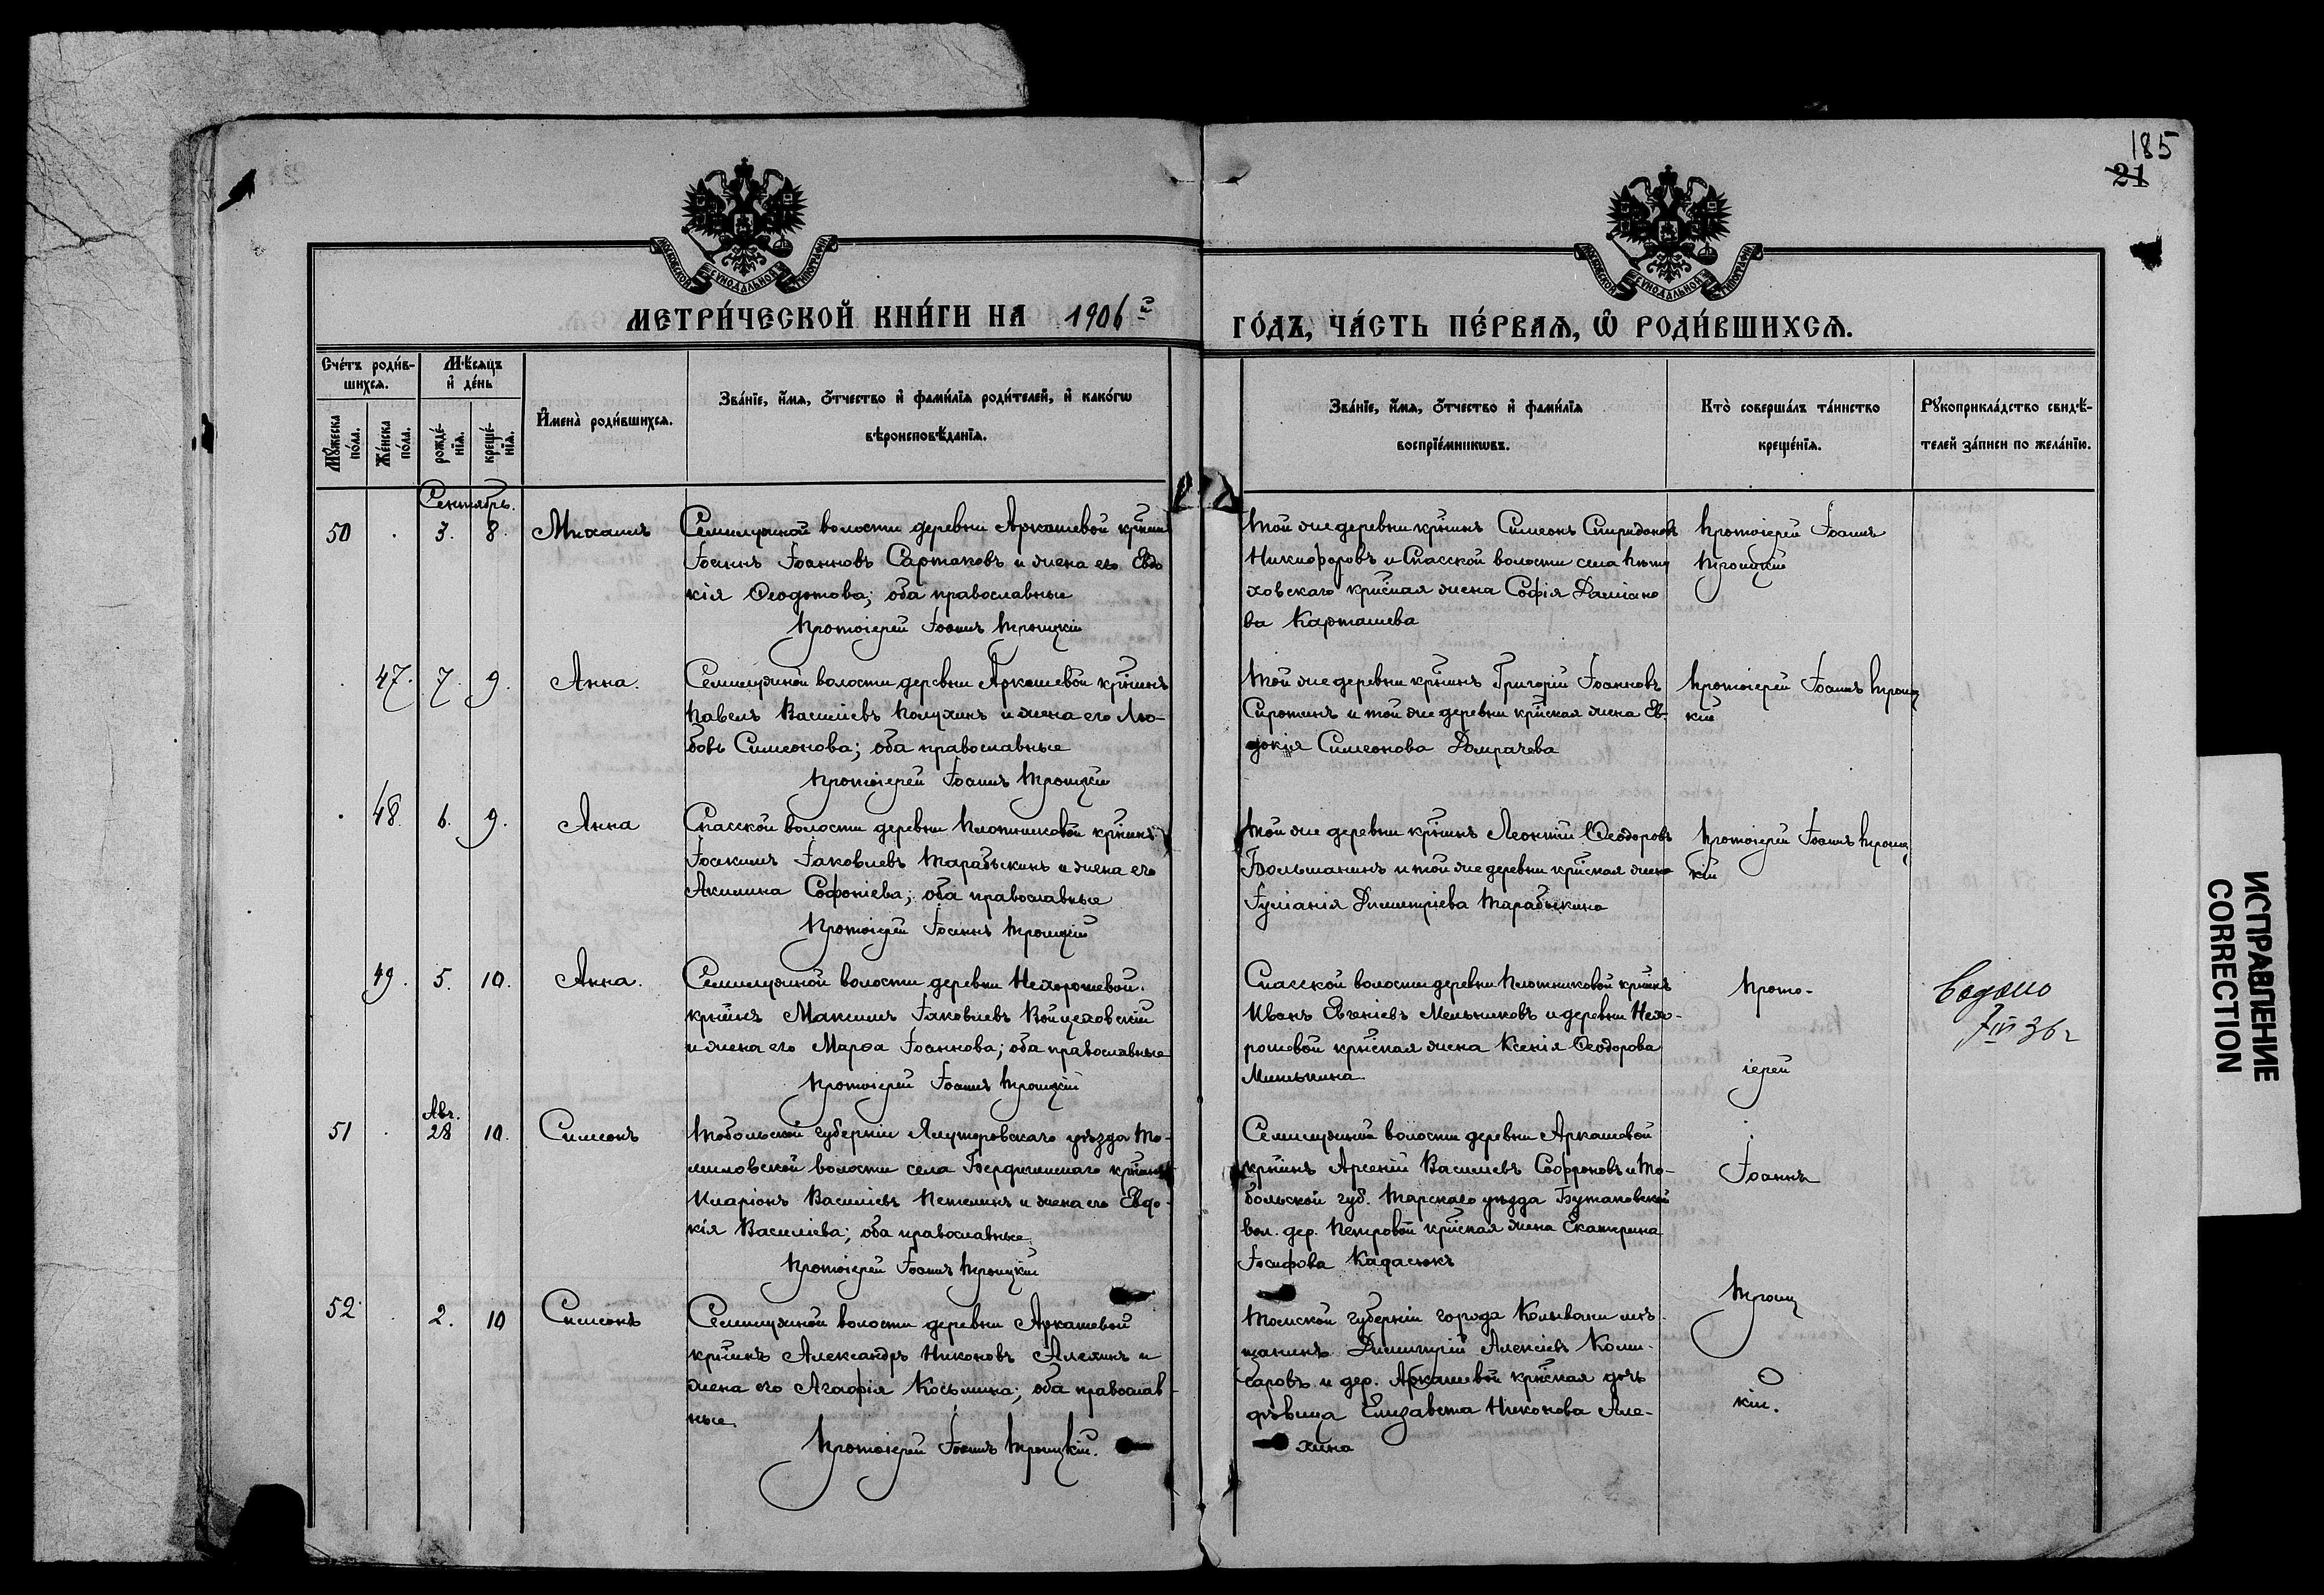 185
21
МОСКОВСКОЙ СѴНОДАЛЬНОЙ ТИПОГРАФІИ
МОСКОВСКОЙ СѴНОДАЛЬНОЙ ТИПОГРАФІИ
МЕТРИ́ЧЕСКОЙ КНИ́ГИ НА 1906й
ГО́ДЪ, ЧА́СТЬ ПЕ́РВАѦ, Ѡ РОДИ́ВШИХСѦ.
Сче́тъ роди́в-
шихсѧ.
Мꙋ́жеска по́ла.
Же́нска по́ла.
Мѣ́сѧцъ
и де́нь
рожде́-
нїѧ.
креще́-
нїѧ.
Имена̀ роди́вшихсѧ.
Зва́нїе, и́мѧ, ѻ́тчество и фами́лїѧ роди́телей, и како́гѡ
вѣроисповѣ́данїѧ.
Зва́нїе, и́мѧ, ѻ́тчество и фами́лїѧ
воспрїе́мникѡвъ.
Кто̀ соверша́лъ та́инство
креще́нїѧ.
Рꙋкоприкла́дство свидѣ́-
телей за́писи по жела́нїю.
Сентябрь.
50 . 3. 8. Михаилъ
Семилужной волости деревни Аркашевой кр̃нинъ
Іоаннъ Іоанновъ Сартаковъ и жена его Евдо
кія Ѳеодотова; оба православные
Протоіерей Іоаннъ Троицкій
Той же деревни кр̃нинъ Симеонъ Спиридоновъ
Никифоровъ и Спасской волости села
ховскаго кр̃нская жена Софія Даміано
ва Карташева
Протоіерей Іоаннъ
Троицкій
. 47. 7. 9. Анна.
Семилужной волости деревни Аркашевой кр̃нинъ
Павелъ Василіевъ Полухинъ и жена его Лю-
бовь Симеонова; оба православные
Протоіерей Іоаннъ Троицкій
Той же деревни кр̃нинъ Григорій Іоанновъ
Сиротинъ и той же деревни кр̃нская жена Ев-
докія Симеонова Домрачева
Протоіерей Іоаннъ Троиц
кій
. 48. 6. 9. Анна
Спасской волости деревни Плотниковой кр̃нинъ
Іоакимъ Іаковлевъ Тарабыкинъ и жена его
Акилина Софоніева; оба православные
Протоіерей Іоаннъ Троицкій
Той же деревни кр̃нинъ Леонтій Ѳеодоровъ
Большанинъ и той же деревни кр̃нская жена
Іуліанія Димитріева Тарабыкина
Протоіерей Іоаннъ Троиц
кій
49. 5. 10. Анна.
Семилужной волости деревни Нехорошевой
кр̃нинъ Максимъ Іаковлевъ Войцеховскій
и жена его Марѳа Іоаннова; оба православные
Протоіерей Іоаннъ Троицкій
Спасской волости деревни Плотниковой кр̃нинъ
Иванъ Евгеніевъ Мельниковъ и деревни Нехо-
рошевой кр̃нская жена Ксенія Ѳеодорова
Минькина
Прото-
іерей
IV 36 г
Авг.
51 . 28 10. Симеонъ
Тобольской губерніи Ялуторовскаго уѣзда То-
миловской волости села Бердюгинскаго кр̃нинъ
Иларіонъ Василіевъ Петелинъ и жена его Евдо-
кія Василіева; оба православные
Протоіерей Іоаннъ Троицкій
Семилужной волости деревни Аркашевой
кр̃нинъ Арсеній Василіевъ Софроновъ и То-
больской губ. Тарскаго уѣзда Бутаковской
вол. дер. Петровой кр̃нская жена Екатерина
Іосифова
Іоаннъ
52. . 2. 10 Симеонъ
Семилужной волости деревни Аркашевой
кр̃нинъ Александръ Никоновъ Алехинъ и
жена его Агафія Косьмина; оба православ-
ные
Протоіерей Іоаннъ Троицкій.
Томской губерніи города Колывани мѣ-
щанинъ Димитрій Алексіевъ Коми-
саровъ и дер. Аркашевой кр̃нская дочь
дѣвица Елизавета Никонова Але-
хина
Троиц
кій.
ИСПРАВЛЕНИЕ
CORRECTION